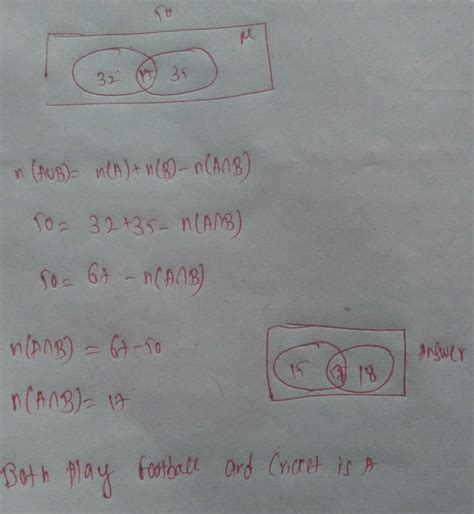 50
μ
32 17 35
n(A∪B)= n(A)+n(B)-n(A∩B)
50= 32+35- n(A∩B)
50= 67 - n(A∩B)
n(A∩B) = 67-50
n(A∩B)= 17
15 17 18
Answer
Both play football and Cricket is A